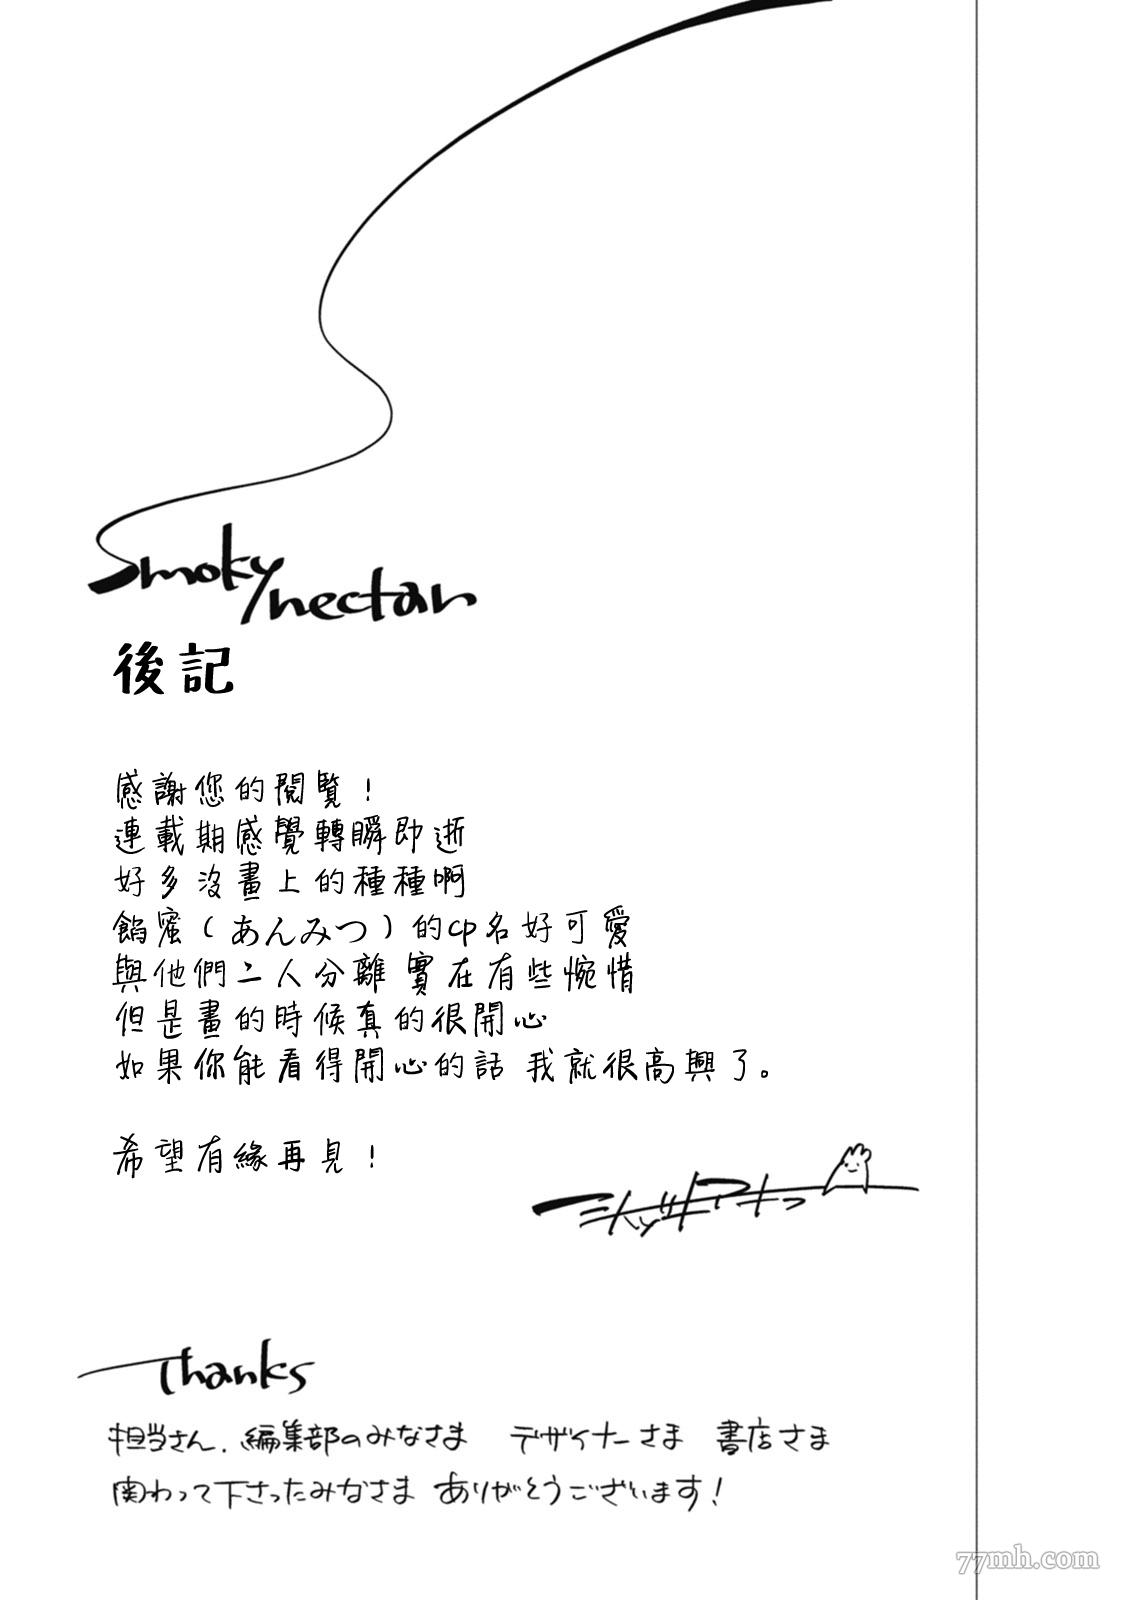 Smoky nectar
後記
感謝您的閱覧！
連載期感覺轉瞬即逝
好多沒畫上的種種啊
餡蜜（あんみつ）的cp名好可愛
與他們二人分離 實在有些惋惜
但是畫的時候真的很開心
如果你能看得開心的話 我就很高興了。
希望有緣再見！
Thanks
担当さん、編集部のみなさま　デザイナーさま　書店さま
関わって下さったみなさま ありがとうございます！
77mh.com